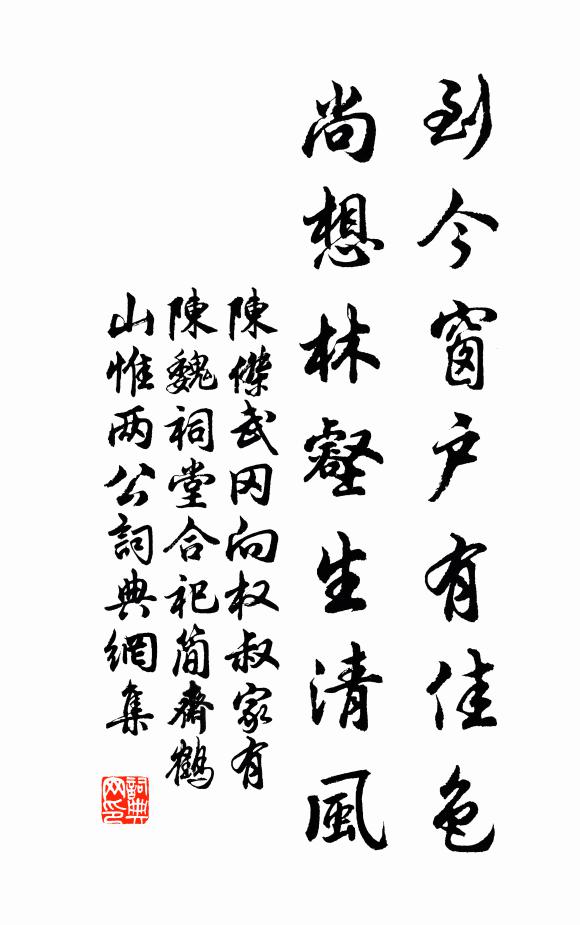 到今窗户有佳色
尚想林壑生清風
陳傑武冈向权叔家有
陳魏祠堂合祀简齋鶴
山惟两公詞典網集
詞典网印